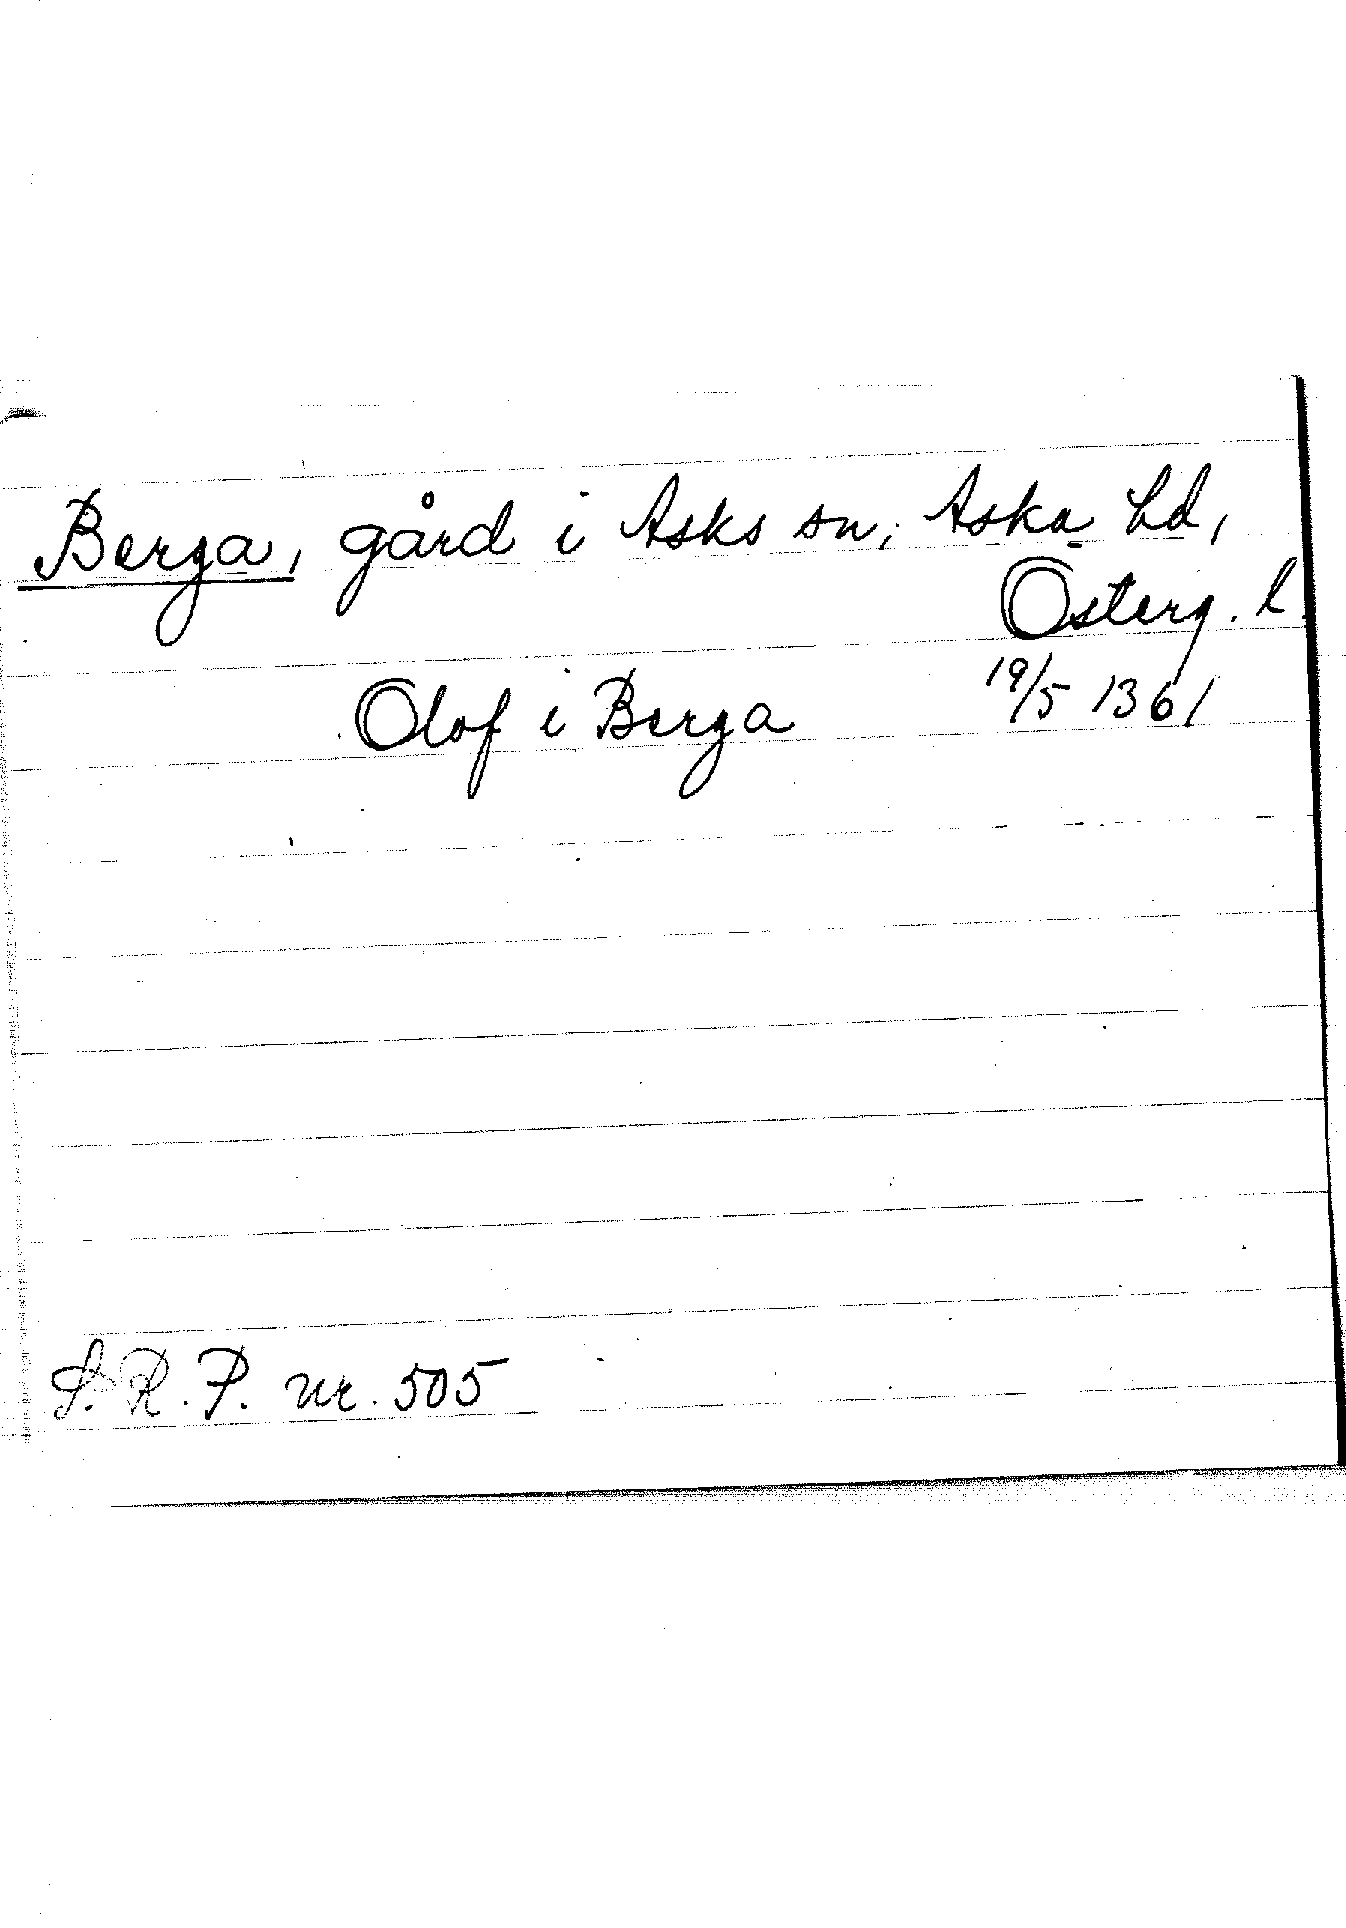 Berga, gård i Asks sn, Aska hd,
Österg. l.
Olof i Berga 19/5 1361
S.R.P. nr. 505